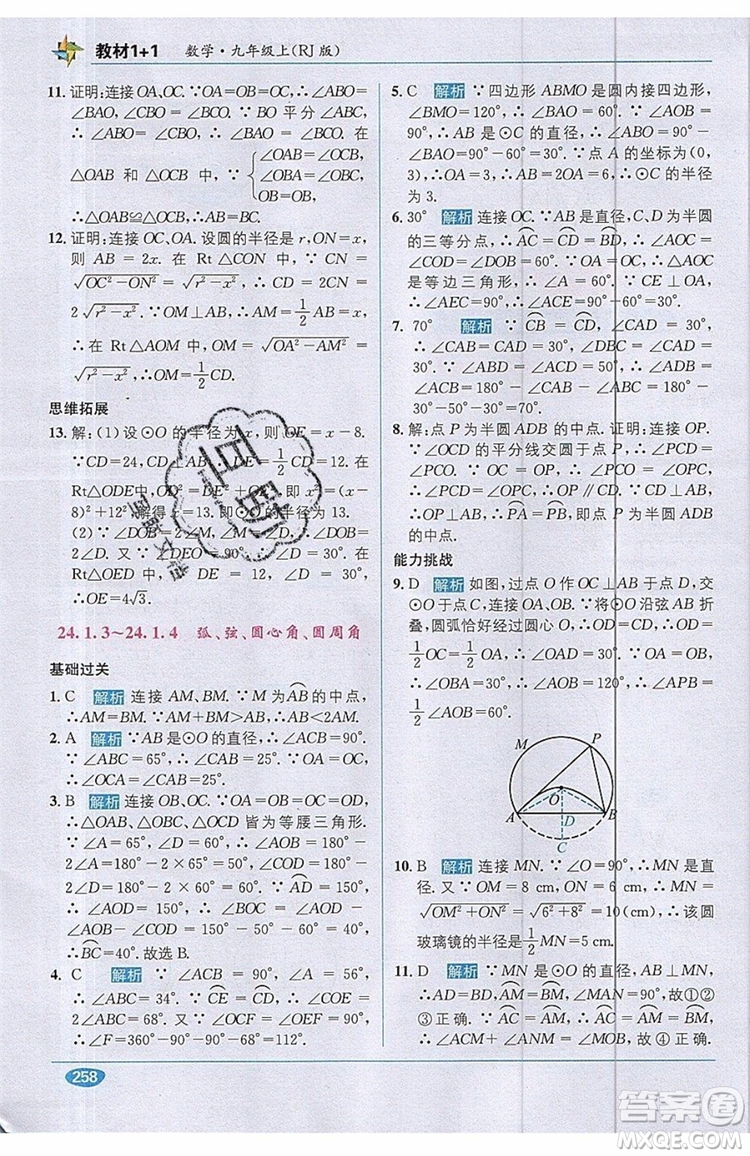 教材1+1 数学·九年级上(RJ版)
11. 证明:连接 OA、OC. ∵OA=OB=OC, ∴∠ABO=
∠BAO, ∠CBO=∠BCO. ∵ BO 平分∠ABC,
∴ ∠ABO = ∠CBO, ∴ ∠BAO = ∠BCO. 在
△OAB 和 △OCB 中, { ∠OAB=∠OCB, ∠OBA=∠OBC, OB=OB,
∴△OAB≌△OCB, ∴AB=CB.
12. 证明:连接 OC、OA. 设圆的半径是 r, ON=x,
则 AB = 2x. 在 Rt△CON 中, ∴ CN =
√(OC²-ON²) = √(r²-x²), ∴ CD = 2CN =
2√(r²-x²). ∵OM⊥AB, ∴AM=1/2AB=x.
在 Rt△AOM 中, OM = √(OA²-AM²) =
√(r²-x²), ∴OM=1/2CD.
思维拓展
13. 解:(1) 设⊙O 的半径为 x, 则 OE=x-8.
∵CD=24, ∴DE=1/2CD=12. 在
Rt△ODE 中, OD²=DE²+OE², 即 x²=(x-
8)²+12², 解得 x=13. ∴⊙O 的半径为 13.
(2) ∵∠DOB=2∠M, ∠M=∠D, ∴∠DOB=
2∠D. 又∵∠DEO=90°, ∴∠D=30°. 在
Rt△OED 中, ∵DE=12, ∠D=30°,
∴OE=4√3.
24.1.3~24.1.4 弧、弦、圆心角、圆周角
基础过关
1. C 解析 连接 AM、BM. ∵M 为AB的中点,
∴AM=BM. ∵AM+BM>AB, ∴AB<2AM.
2. A 解析 ∵AB 是⊙O 的直径, ∴∠ACB=90°.
∵∠ABC=65°, ∴∠CAB=25°. ∵OA=OC,
∴∠OCA=∠CAB=25°.
3. B 解析 连接 OB、OC. ∵OA=OB=OC=OD,
∴△OAB、△OBC、△OCD 皆为等腰三角形.
∵∠ABC=65°, ∠BCD=75°, ∴∠AOB=
180°-2×65°=50°, ∠COD=180°-2×
75°=30°. ∵∠AOD=150°, ∴∠BOC=
∠AOD-∠AOB-∠COD=150°-50°-30°=
70°, ∴BC=40°. 故选 B.
4. C 解析 ∵ ∠ACB = 90°, ∠A = 56°,
∴∠ABC=34°. ∵CE=CD, ∴∠COE=
2∠ABC=68°. 又∵∠OCF=∠OEF=90°,
∴∠F=360°-90°-90°-68°=112°.
5. C 解析 ∵四边形 ABMO 是圆内接四边形,
∠BMO=120°, ∴∠BAO=60°. ∵∠AOB=
90°, ∴AB 是⊙C 的直径, ∴∠ABO=90°-
∠BAO=90°-60°=30°. ∵点 A 的坐标为(0,
3), ∴OA=3, ∴AB=2OA=6, ∴⊙C 的半径长
为 3.
6. 30° 解析 连接 OC. ∵AB 是直径, C、D 为半圆
的三等分点, ∴AC=CD=BD, ∴∠AOC=
∠COD=∠DOB=60°. ∵OA=OC, ∴△AOC
是等边三角形, ∴∠A=60°. ∵CE⊥OA,
∴∠AEC=90°, ∴∠ACE=90°-60°=30°.
7. 70° 解析 ∵ CB = CD, ∠CAD = 30°,
∴∠CAB=∠CAD=30°, ∠DBC=∠CAD=
30°. ∵ ∠ABD = ∠ACD = 50°, ∴ ∠ACB =
180° - ∠CAB - ∠ABD - ∠DBC = 180° -
30°-50°-30°=70°.
8. 解:点 P 为半圆 ADB 的中点. 证明:连接 OP.
∵∠OCD 的平分线交圆于点 P, ∴∠PCD=
∠PCO. ∵OC=OP, ∴∠PCO=∠OPC,
∴∠PCD=∠OPC, ∴CD∥OP. ∵CD⊥AB,
∴OP⊥AB, ∴AP=PB, 即点 P 为半圆 ADB
的中点.
能力挑战
9. D 解析 如图, 过点 O 作 OC⊥AB 于点 D,
交⊙O 于点 C, 连接 OA、OB. ∵将⊙O 沿弦 AB 折
叠, 圆弧恰好经过圆心 O, ∴ OD = 1/2OC =
1/2OA, ∴∠OAD=30°. 又∵OA=OB, ∴∠OBA=
∠OAB=30°, ∴∠AOB=120°, ∴∠APB=
1/2∠AOB=60°.
M P O A D B C
10. B 解析 连接 MN. ∵∠O=90°, ∴MN 是直
径. 又∵OM=8 cm, ON=6 cm, ∴MN=
√(OM²+ON²)=√(8²+6²)=10(cm), ∴该圆
玻璃镜的半径是 1/2MN=5 cm.
11. D 解析 ∵MN 是⊙O 的直径, AB⊥MN,
∴AD=BD, AN=BN, AM=BM, 故①②
③正确. ∵AC=AM, ∴AC=AM=BM,
∴∠ACM=∠ANM=∠MOB, 故④正确.
258
答案圈
MXQE.COM